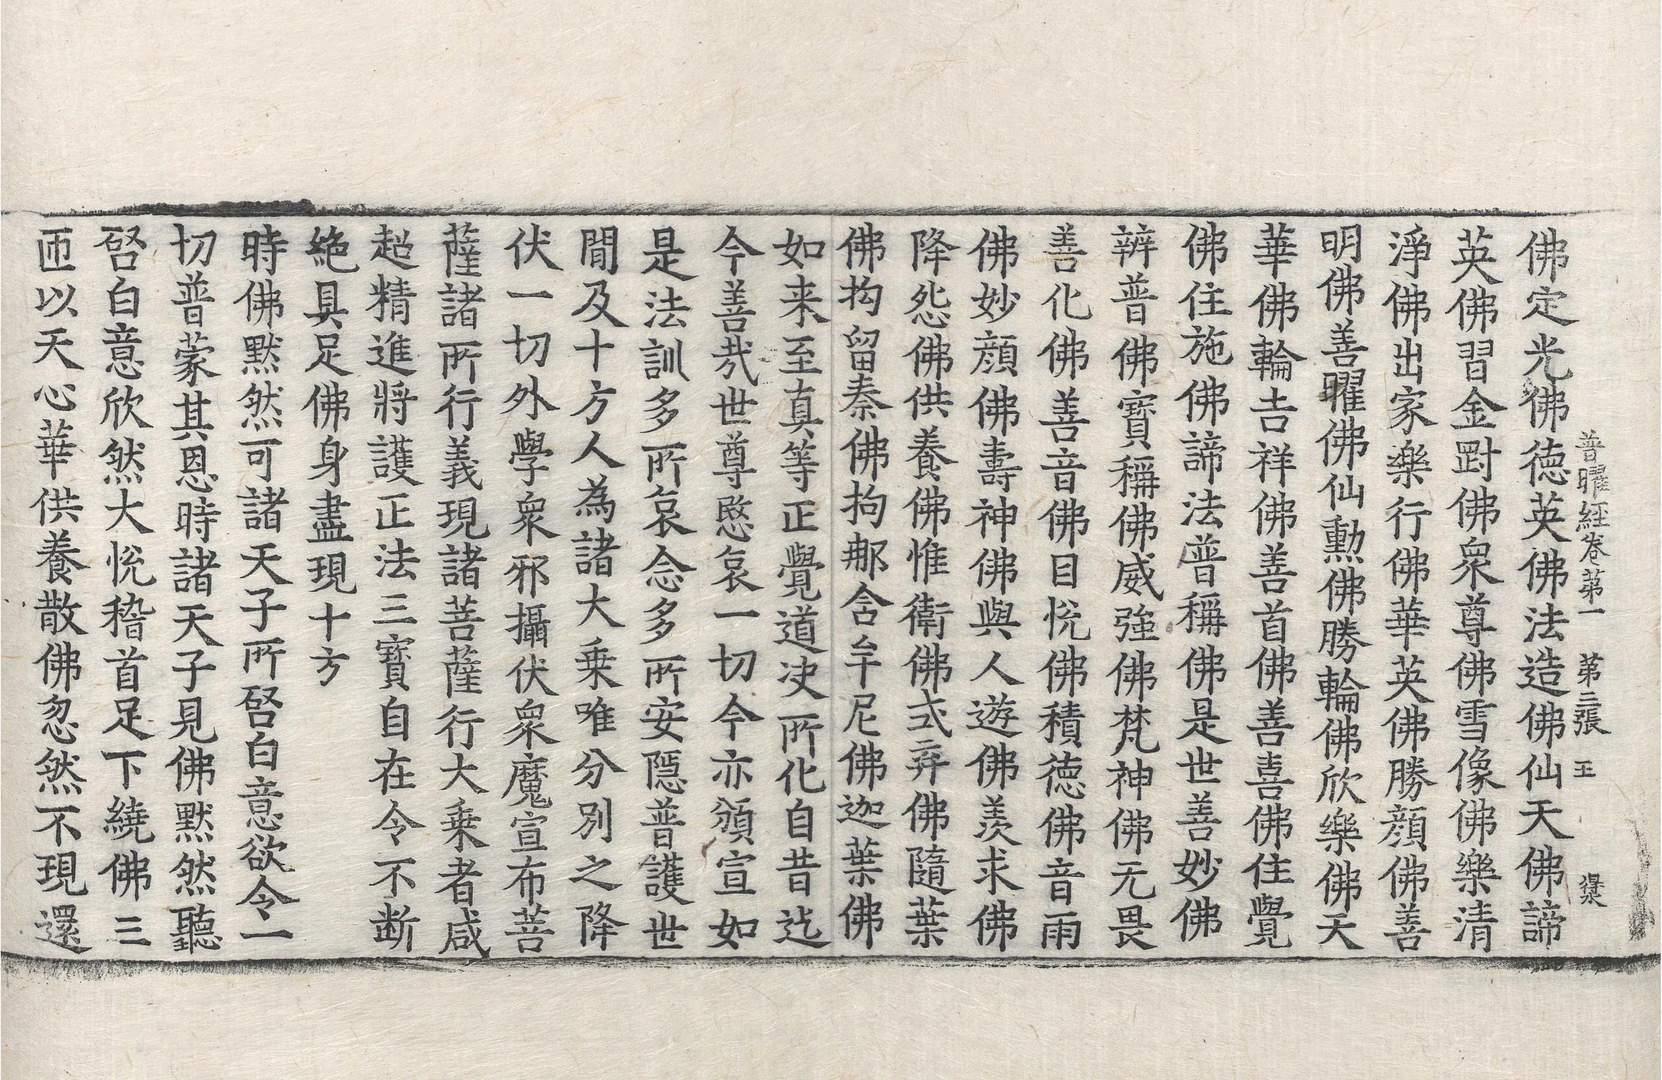 普曜經卷第一 第三張 王
佛定光佛德英佛法造佛仙天佛諦
英佛習金對佛衆尊佛雪像佛樂清
淨佛出家樂行佛華英佛勝顔佛善
明佛善曜佛仙勳佛勝輪佛欣樂佛天
華佛輪吉祥佛善首佛善喜佛住覺
佛住施佛諦法普稱佛是世善妙佛
辨普佛寶稱佛威強佛梵神佛无畏
善化佛善音佛目悅佛積德佛音雨
佛妙顔佛壽神佛與人遊佛羨求佛
降怨佛供養佛惟衛佛式弃佛隨葉
佛拘留秦佛拘那含牟尼佛迦葉佛
如来至真等正覺道决所化自昔迄
今善哉世尊愍哀一切今亦頒宣如
是法訓多所哀念多所安隱普護世
間及十方人為諸大乗唯分別之降
伏一切外學衆邪攝伏衆魔宣布菩
薩諸所行義現諸菩薩行大乗者咸
超精進將護正法三寶自在令不断
絕具足佛身盡現十方
時佛默然可諸天子所啓白意欲令一
切普蒙其恩時諸天子見佛默然聽
啓白意欣然大悅稽首足下繞佛三
匝以天心華供養散佛忽然不現還